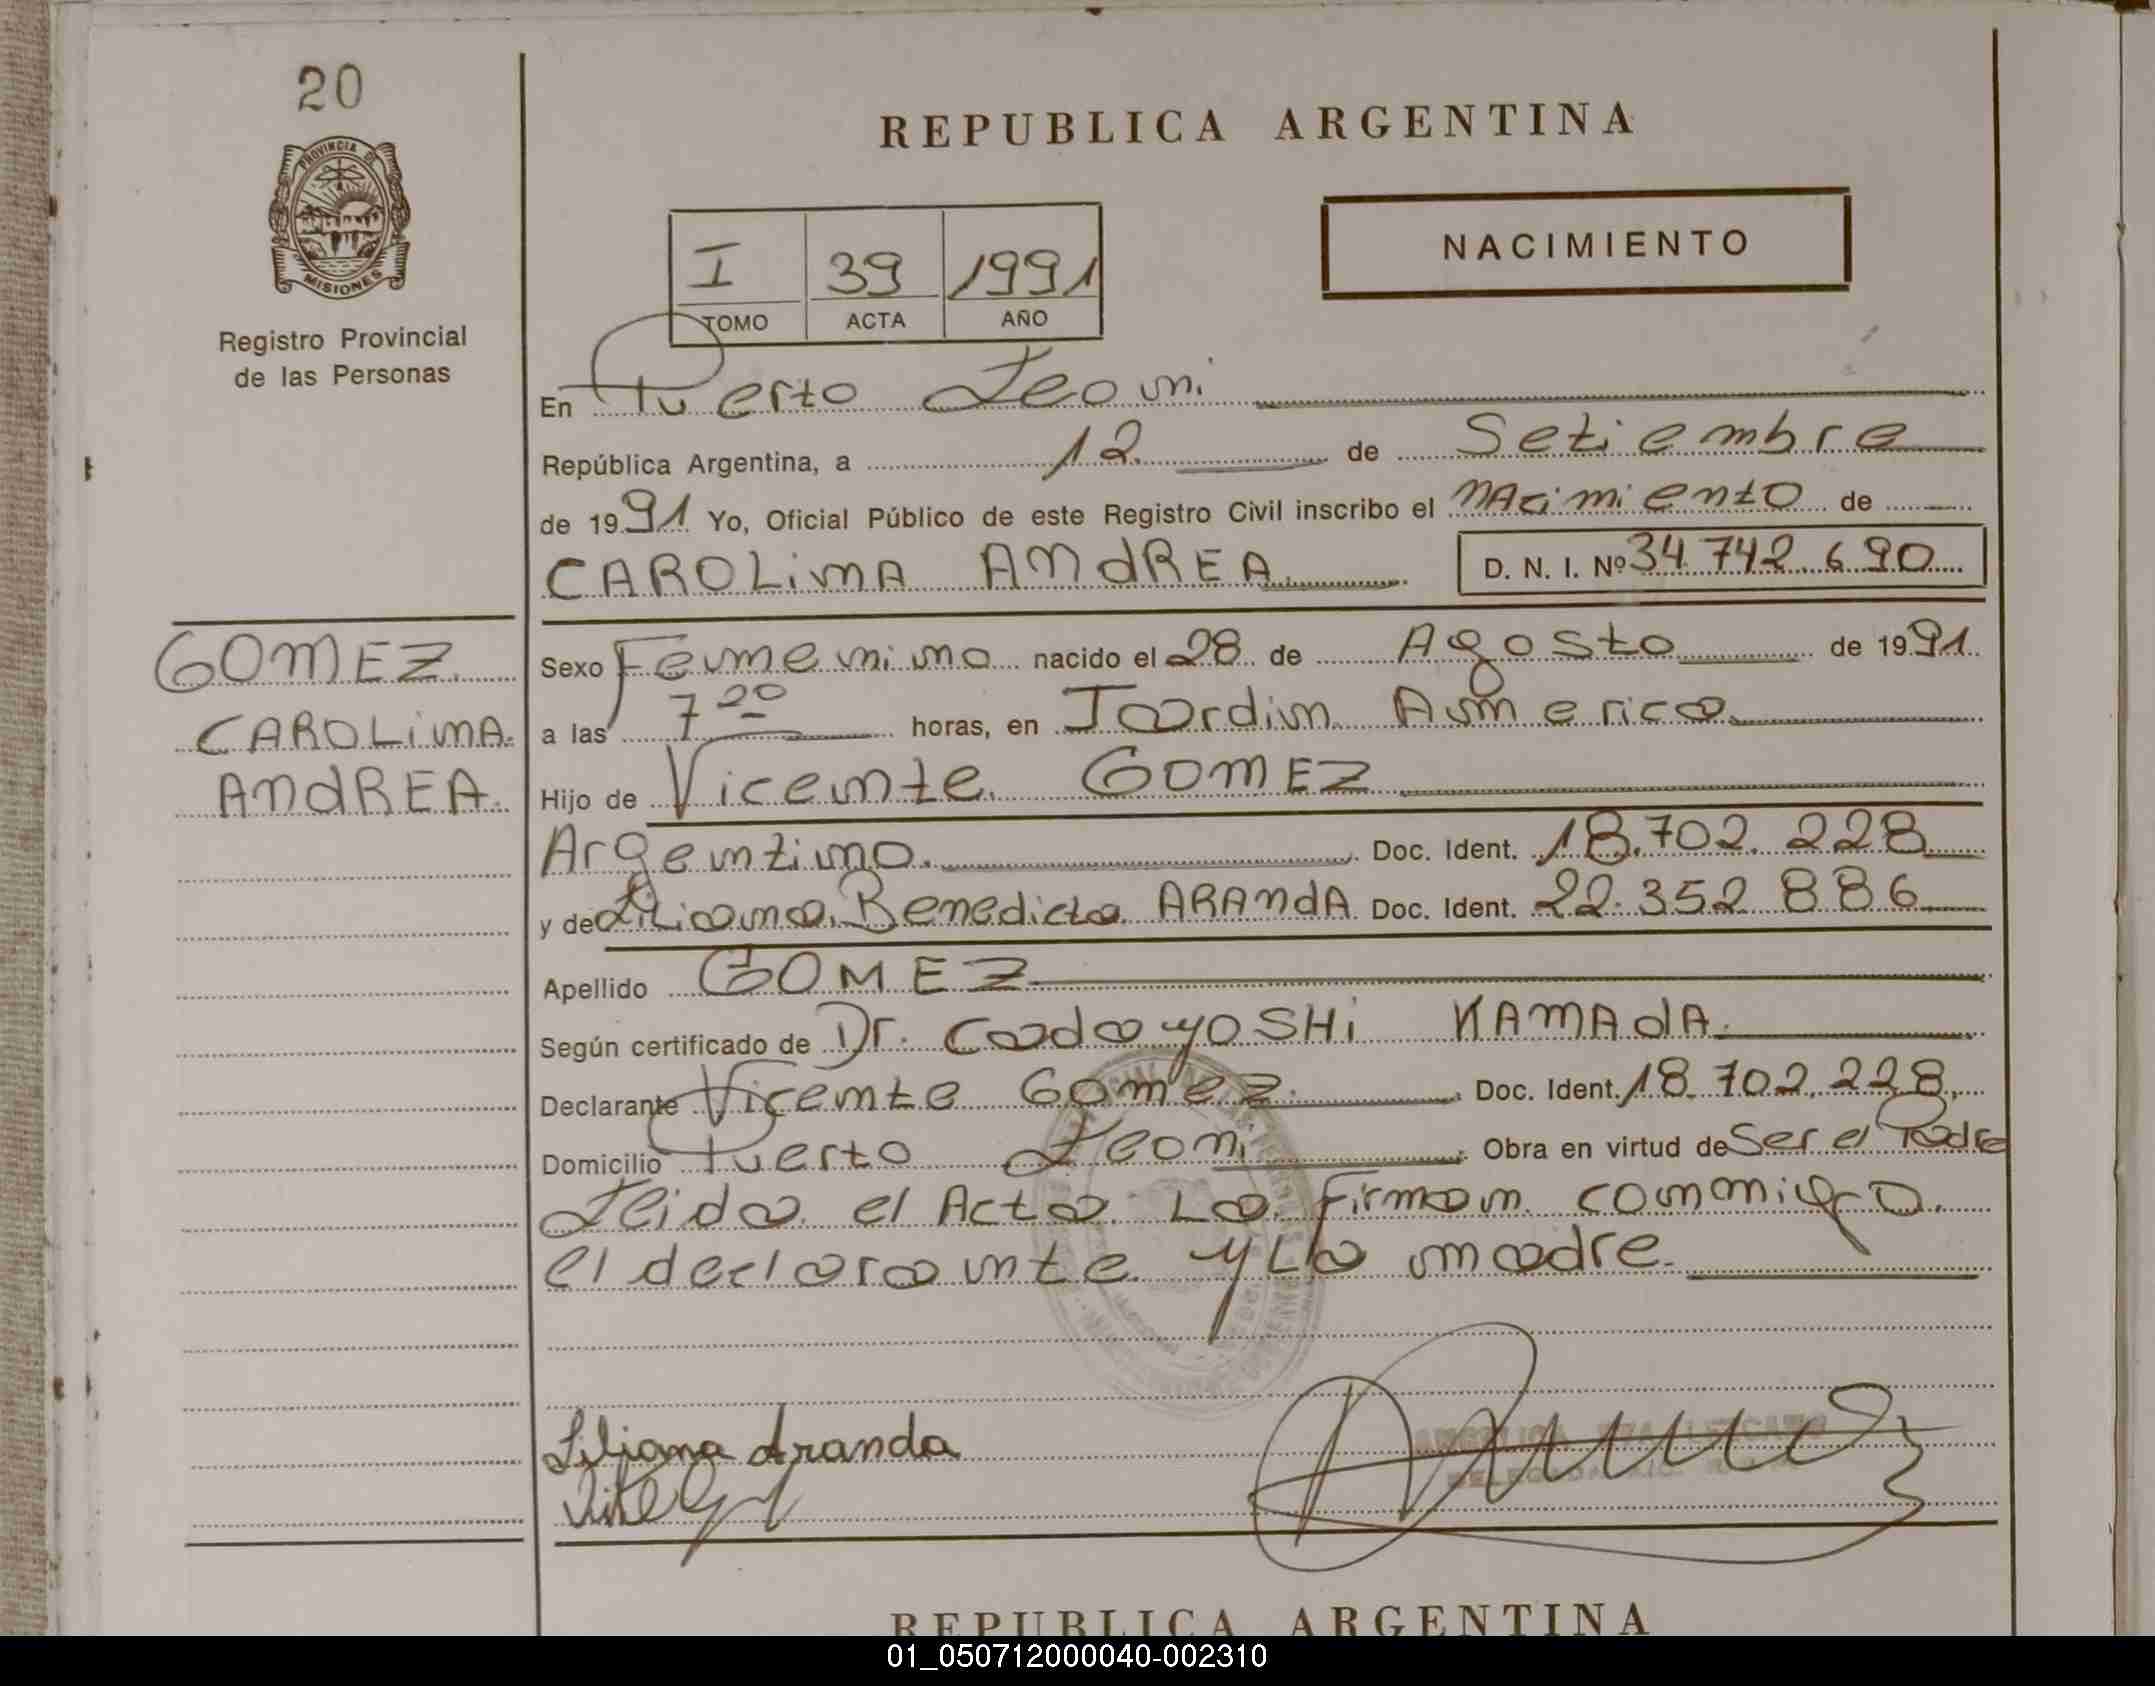 20
PROVINCIA DE
MISIONES
Registro Provincial
de las Personas
REPUBLICA ARGENTINA
I 39 1991
TOMO ACTA AÑO
NACIMIENTO
En Puerto Leoni
República Argentina, a 12 de Setiembre
de 1991 Yo, Oficial Público de este Registro Civil inscribo el NAcimiento de
CAROLiNA ANdREA D. N. I. Nº 34.742.690
GOMEZ
CAROLiNA
ANdREA
Sexo Femenino nacido el 28 de Agosto de 1991
a las 7 20 horas, en Jardin America
Hijo de Vicente GOMEZ
Argentino. Doc. Ident. 18.702.228
y de Liliana Benedicta ARANdA Doc. Ident. 22.352 886
Apellido GOMEZ
Según certificado de Dr. CadayoSHi KAMAdA
Declarante Vicente Gomez Doc. Ident. 18.702.228
Domicilio Puerto Leoni Obra en virtud de Ser el Padre
Leida el Acta La Firman conmigo
el declarante y La madre.
Liliana Aranda
REPUBLICA ARGENTINA
01_050712000040-002310